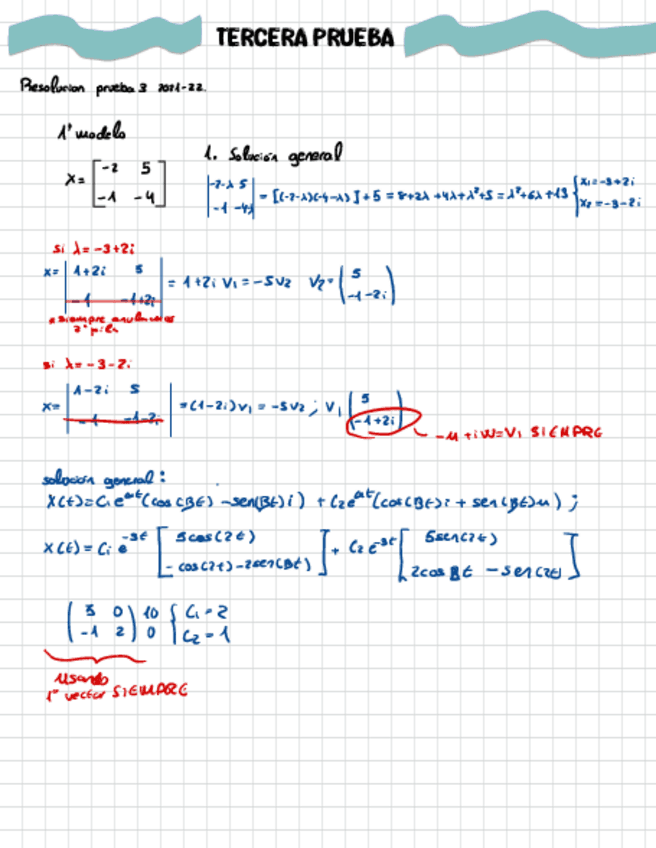 TERCERA PRUEBA
Resolucion prueba 3 2021-22.
1º modelo
1. Solución general
X = [ -2 5
-1 -4 ]
| -2-λ 5
-1 -4-λ | = [(-2-λ)(-4-λ)]+5 = 8+2λ+4λ+λ²+5 = λ²+6λ+13 { x₁=-3+2i
x₂=-3-2i
si λ=-3+2i
x= | 1+2i 5
-1 -1+2i | = 1+2i V₁ = -5V₂ V₂= ( 5
-1-2i )
* siempre anulamos
2ª fila
si λ=-3-2i
x= | 1-2i 5
-1 -1-2i | =(1-2i)V₁ = -5V₂ ; V₁ ( 5
-1+2i )
-u+iw=V₁ SIEMPRE
solución general:
X(t)=C₁e^at(cos(Bt) -sen(Bt)i) + C₂e^at(cos(Bt)i + sen(Bt)u) ;
X(t) = C₁ e^-3t [ 5cos(2t)
-cos(2t)-2sen(Bt) ] + C₂e^-3t [ 5sen(2t)
2cos Bt -sen(2t) ]
( 5 0 ) 10 { C₁=2
( -1 2 ) 0 { C₂=1
usando
1º vector SIEMPRE